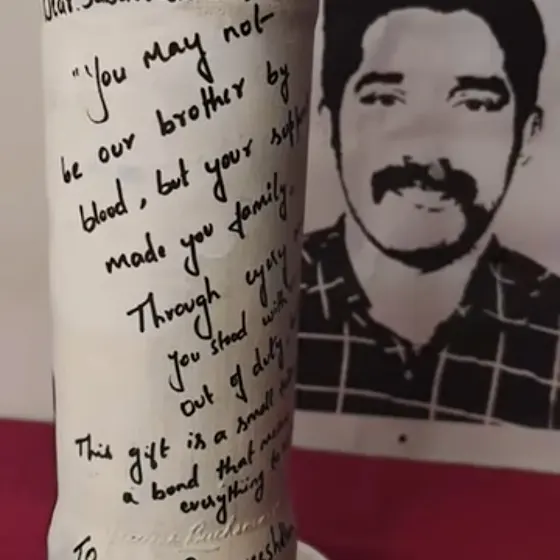 Dear
"You may not
be our brother by
blood, but your
made you family.
Through every
you stood with
out of duty,
This gift is a small
a bond that
everything to
To